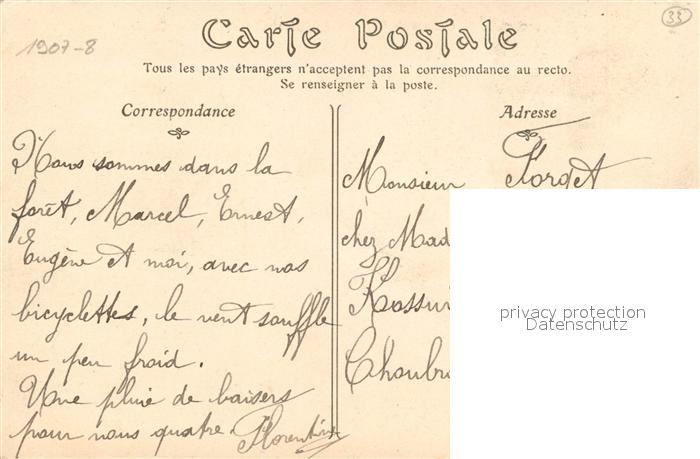 33
1907-8
Carte Postale
Tous les pays étrangers n'acceptent pas la correspondance au recto.
Se renseigner à la poste.
Correspondance
Nous sommes dans la
forêt, Marcel, Ernest,
Eugène et moi, avec nos
bicyclettes, le vent souffle
un peu froid.
Une pluie de baisers
pour nous quatre. Florentine
Adresse
Monsieur Forget
chez Mad
Chaubr
privacy protection
Datenschutz